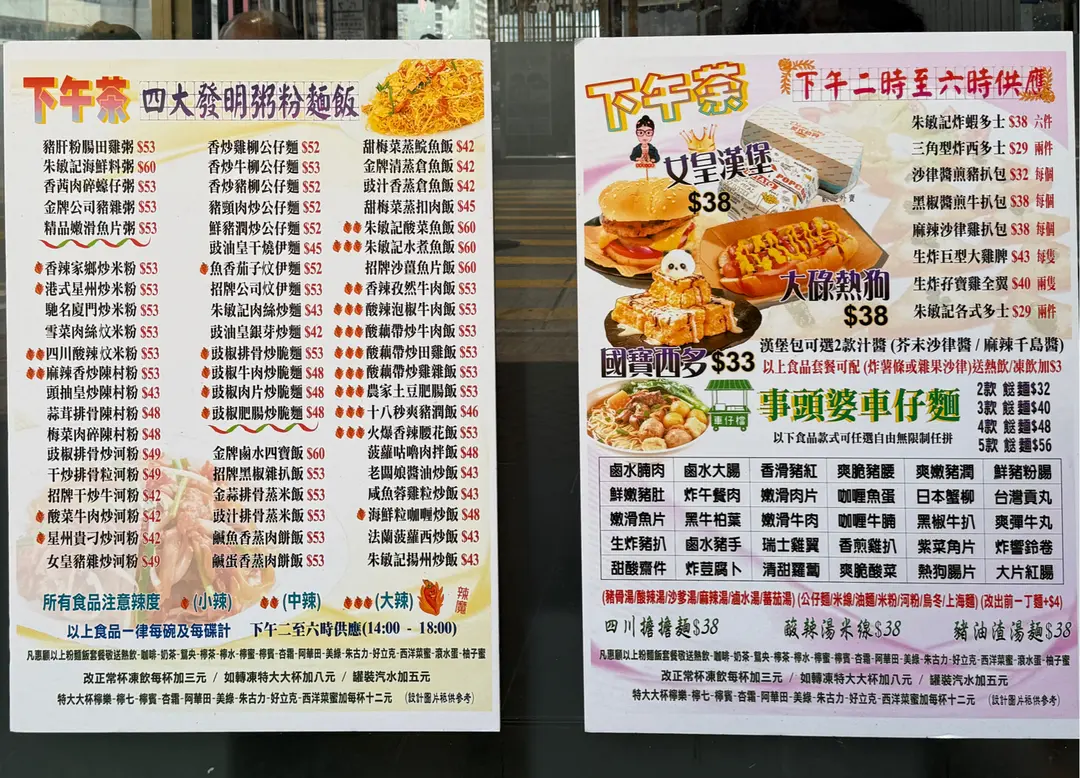 下午茶 四大發明粥粉麵飯
豬肝粉腸田雞粥 $53
朱敏記海鮮料粥 $60
香茜肉碎蠔仔粥 $53
金牌公司豬雜粥 $53
精品嫩滑魚片粥 $53
香辣家鄉炒米粉 $53
港式星州炒米粉 $53
馳名廈門炒米粉 $53
雪菜肉絲炆米粉 $53
四川酸辣炆米粉 $53
麻辣香炒陳村粉 $53
頭抽皇炒陳村粉 $43
蒜茸排骨陳村粉 $48
梅菜肉碎陳村粉 $48
豉椒排骨炒河粉 $49
干炒排骨粒河粉 $49
招牌干炒牛河粉 $42
酸菜牛肉炒河粉 $42
星州貴刁炒河粉 $42
女皇豬雜炒河粉 $49
香炒雞柳公仔麵 $52
香炒牛柳公仔麵 $52
香炒豬柳公仔麵 $52
豬頸肉炒公仔麵 $52
鮮豬潤炒公仔麵 $52
豉油皇干燒伊麵 $45
魚香茄子炆伊麵 $52
招牌公司炆伊麵 $53
朱敏記肉絲炒麵 $43
豉油皇銀芽炒麵 $42
豉椒排骨炒脆麵 $53
豉椒牛肉炒脆麵 $48
豉椒肉片炒脆麵 $48
豉椒肥腸炒脆麵 $48
金牌鹵水四寶飯 $60
招牌黑椒雜扒飯 $53
金蒜排骨蒸米飯 $53
豉汁排骨蒸米飯 $53
鹹魚香蒸肉餅飯 $53
鹹蛋香蒸肉餅飯 $53
甜梅菜蒸鯇魚飯 $42
金牌清蒸倉魚飯 $42
豉汁香蒸倉魚飯 $42
甜梅菜蒸扣肉飯 $45
朱敏記酸菜魚飯 $60
朱敏記水煮魚飯 $60
招牌沙薑魚片飯 $60
香辣孜然牛肉飯 $53
酸辣泡椒牛肉飯 $53
酸蕹帶炒牛肉飯 $53
酸蕹帶炒田雞飯 $53
酸蕹帶炒雞雜飯 $53
農家土豆肥腸飯 $53
十八秒爽豬潤飯 $46
火爆香辣腰花飯 $53
菠蘿咕嚕肉拌飯 $48
老闆娘醬油炒飯 $43
咸魚蓉雞粒炒飯 $43
海鮮粒咖喱炒飯 $48
法蘭菠蘿西炒飯 $43
朱敏記揚州炒飯 $43
所有食品注意辣度 (小辣) (中辣) (大辣) 辣魔
以上食品一律每碗及每碟計 下午二至六時供應(14:00 - 18:00)
凡惠顧以上粉麵飯套餐敬送熱飲-咖啡-奶茶-鴛央-檸茶-檸水-檸蜜-檸賓-杏霜-阿華田-美綠-朱古力-好立克-西洋菜蜜-滾水蛋-柚子蜜
改正常杯凍飲每杯加三元 / 如轉凍特大大杯加八元 / 罐裝汽水加五元
特大大杯檸樂-檸七-檸賓-杏霜-阿華田-美綠-朱古力-好立克-西洋菜蜜加每杯十二元 (設計圖片祗供參考)
下午茶 下午二時至六時供應
女皇漢堡
$38
大碌熱狗
$38
國寶西多 $33
朱敏記炸蝦多士 $38 六件
三角型炸西多士 $29 兩件
沙律醬煎豬扒包 $32 每個
黑椒醬煎牛扒包 $38 每個
麻辣沙律雞扒包 $38 每個
生炸巨型大雞髀 $43 每隻
生炸孖寶雞全翼 $40 兩隻
朱敏記各式多士 $29 兩件
漢堡包可選2款汁醬 (芥末沙律醬 / 麻辣千島醬)
以上食品套餐可配 (炸薯條或雜果沙律)送熱飲/凍飲加$3
車仔檔
事頭婆車仔麵
以下食品款式可任選自由無限制任拼
2款 餸麵$32
3款 餸麵$40
4款 餸麵$48
5款 餸麵$56
鹵水腩肉 鹵水大腸 香滑豬紅 爽脆豬腰 爽嫩豬潤 鮮豬粉腸
鮮嫩豬肚 炸午餐肉 嫩滑肉片 咖喱魚蛋 日本蟹柳 台灣貢丸
嫩滑魚片 黑牛柏葉 嫩滑牛肉 咖喱牛腩 黑椒牛扒 爽彈牛丸
生炸豬扒 鹵水豬手 瑞士雞翼 香煎雞扒 紫菜角片 炸響鈴卷
甜酸齋件 炸豆腐卜 清甜蘿蔔 爽脆酸菜 熱狗腸片 大片紅腸
(豬骨湯/酸辣湯/沙爹湯/麻辣湯/鹵水湯/蕃茄湯) (公仔麵/米線/油麵/米粉/河粉/烏冬/上海麵) (改出前一丁麵+$4)
四川擔擔麵$38 酸辣湯米線$38 豬油渣湯麵$38
凡惠顧以上粉麵飯套餐敬送熱飲-咖啡-奶茶-鴛央-檸茶-檸水-檸蜜-檸賓-杏霜-阿華田-美綠-朱古力-好立克-西洋菜蜜-滾水蛋-柚子蜜
改正常杯凍飲每杯加三元 / 如轉凍特大大杯加八元 / 罐裝汽水加五元
特大大杯檸樂-檸七-檸賓-杏霜-阿華田-美綠-朱古力-好立克-西洋菜蜜加每杯十二元 (設計圖片祗供參考)